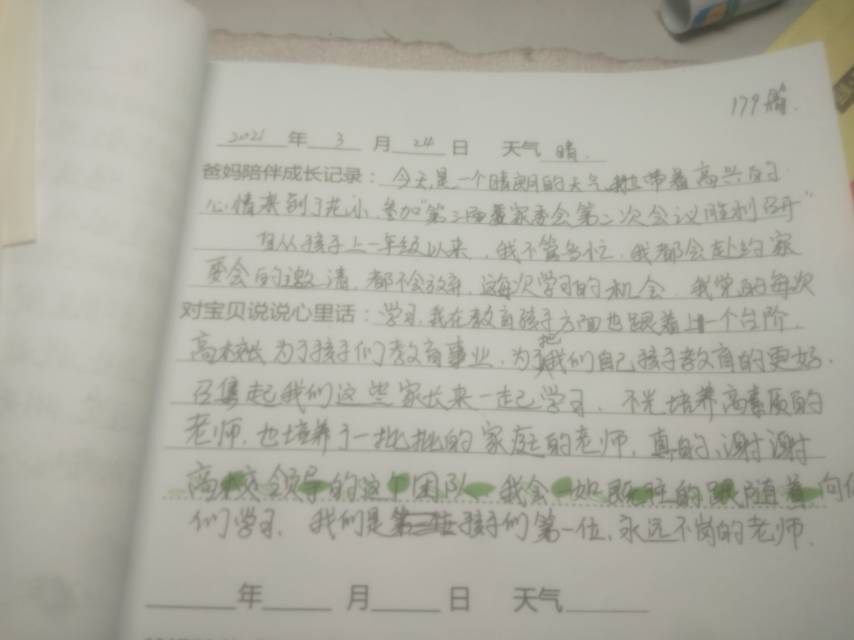 179篇.
2021 年 3 月 24 日 天气 晴.
爸妈陪伴成长记录：今天是一个晴朗的天气,我带着高兴的
心情来到了 小,参加"第三届家委会第二次会议胜利召开"
自从孩子上一年级以来,我不管多忙,我都会赴约家
委会的邀请,都不会放弃,这每次学习的机会,我觉的每次
对宝贝说说心里话：学习,我在教育孩子方面也跟着上一个台阶,
高校长为了孩子们教育事业,为了把我们自己孩子教育的更好.
召集起我们这些家长来一起学习,不光培养高素质的
老师,也培养了一批批的家庭的老师,真的,谢谢
高校领导的这个团队,我会一如既往的跟随着向你
们学习,我们是孩子们第一位,永远不岗的老师.
年 月 日 天气